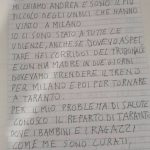 MI CHIAMO ANDREA E SONO IL PIÙ
PICCOLO DEGLI UNDICI CHE HANNO
VINTO A MILANO.
IO CI SONO STATO A TUTTE LE
UDIENZE, ANCHE SE DOVEVO ASPET
TARE NEI CORRIDOI DEL TRIBUNALE
E CON MIA MADRE IN DUE GIORNI
DOVEVAMO PRENDERE IL TRENO
PER MILANO E POI PER TORNARE
A TARANTO.
PER IL MIO PROBLEMA DI SALUTE
CONOSCO IL REPARTO DI TARANTO
DOVE I BAMBINI E I RAGAZZI
COME ME SONO CURATI